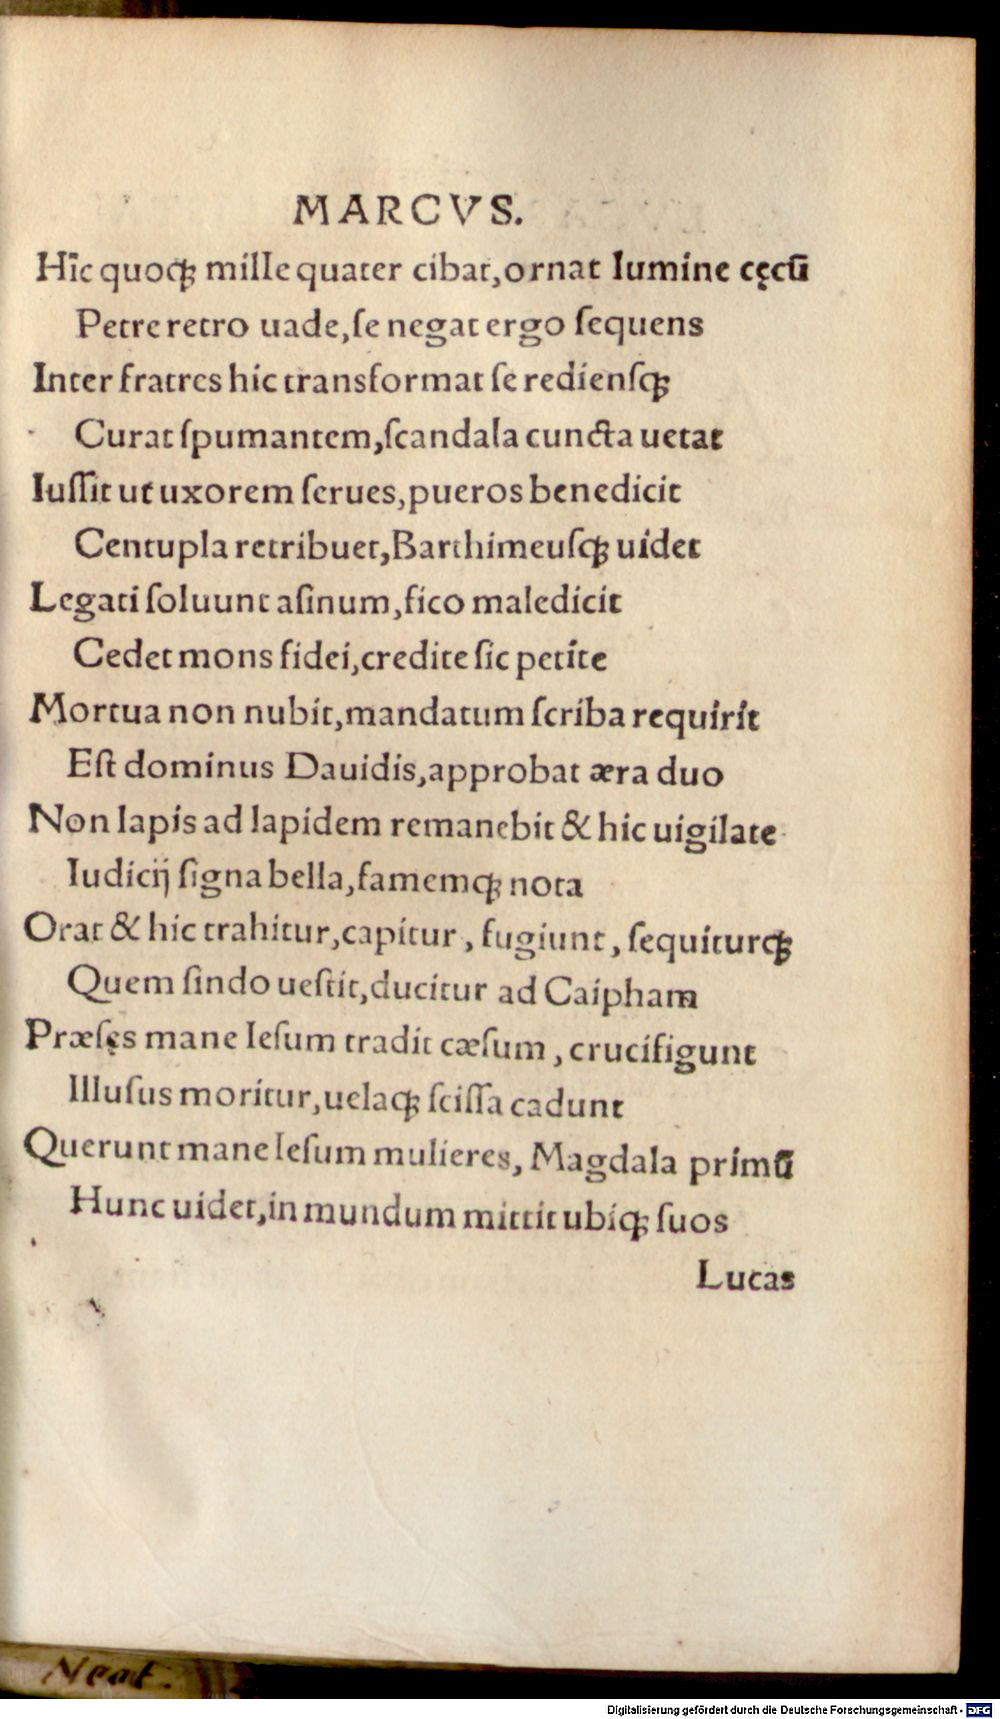 MARCVS.
Hic quoqꝫ mille quater cibat,ornat lumine cęcũ
Petre retro uade,se negat ergo sequens
Inter fratres hic transformat se rediensqꝫ
Curat spumantem,scandala cuncta uetat
Iussit ut uxorem serues,pueros benedicit
Centupla retribuet,Barthimeusqꝫ uidet
Legati soluunt asinum,fico maledicit
Cedet mons fidei,credite sic petite
Mortua non nubit,mandatum scriba requirit
Est dominus Dauidis,approbat æra duo
Non lapis ad lapidem remanebit & hic uigilate
Iudicij signa bella,famemqꝫ nota
Orat & hic trahitur,capitur, fugiunt, sequiturqꝫ
Quem sindo uestit,ducitur ad Caipham
Præsęs mane Iesum tradit cæsum, crucifigunt
Illusus moritur,uelaqꝫ scissa cadunt
Querunt mane Iesum mulieres, Magdala primũ
Hunc uidet,in mundum mittit ubiqꝫ suos
Lucas
Neat.
Digitalisierung gefördert durch die Deutsche Forschungsgemeinschaft - DFG